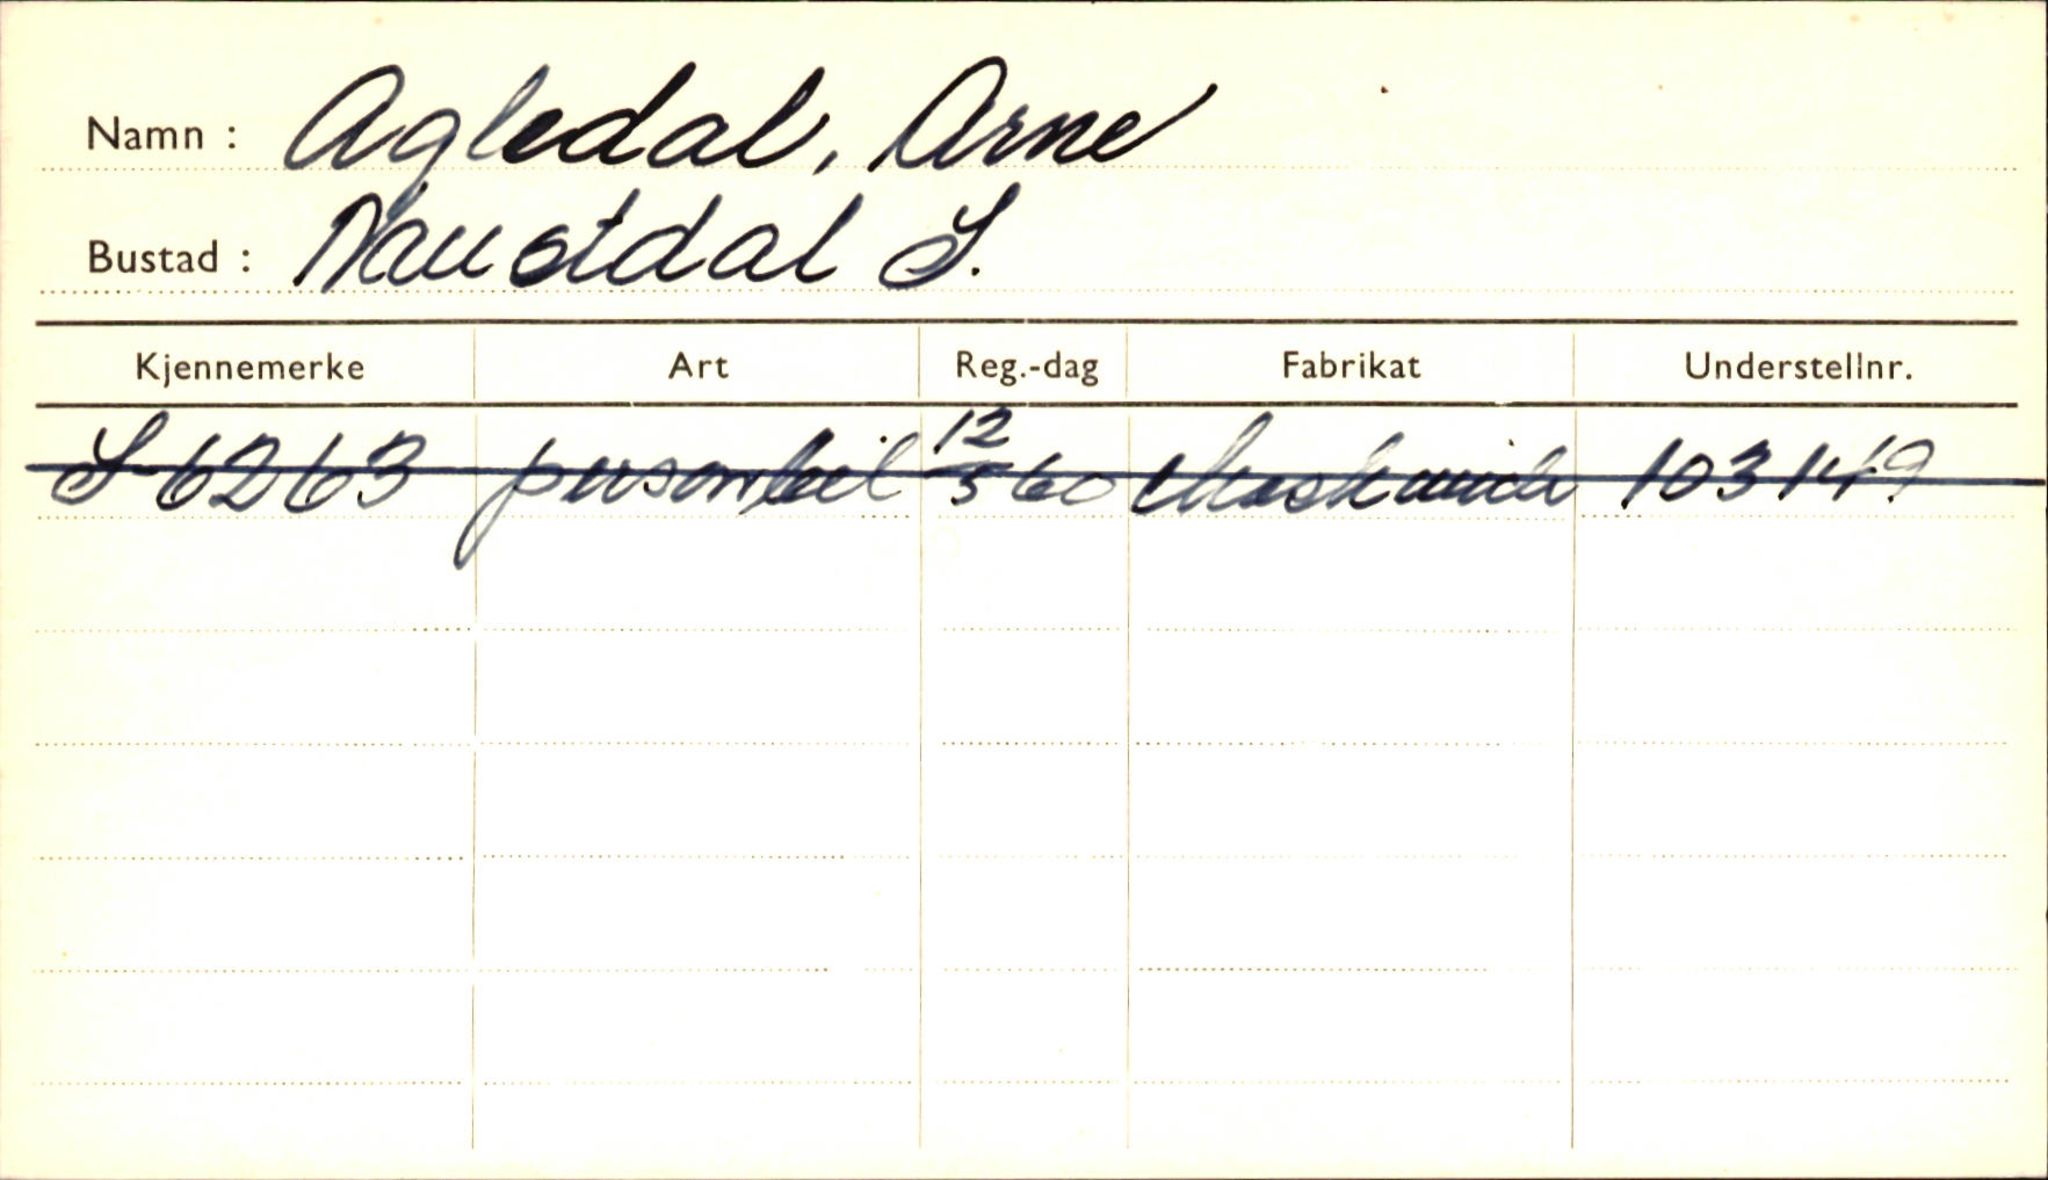 Namn : Agledal, Arne
Bustad : Naustdal S.
Kjennemerke Art Reg.-dag Fabrikat Understellnr.
S-6263 personbil 12/5 60 Moskvich 103149